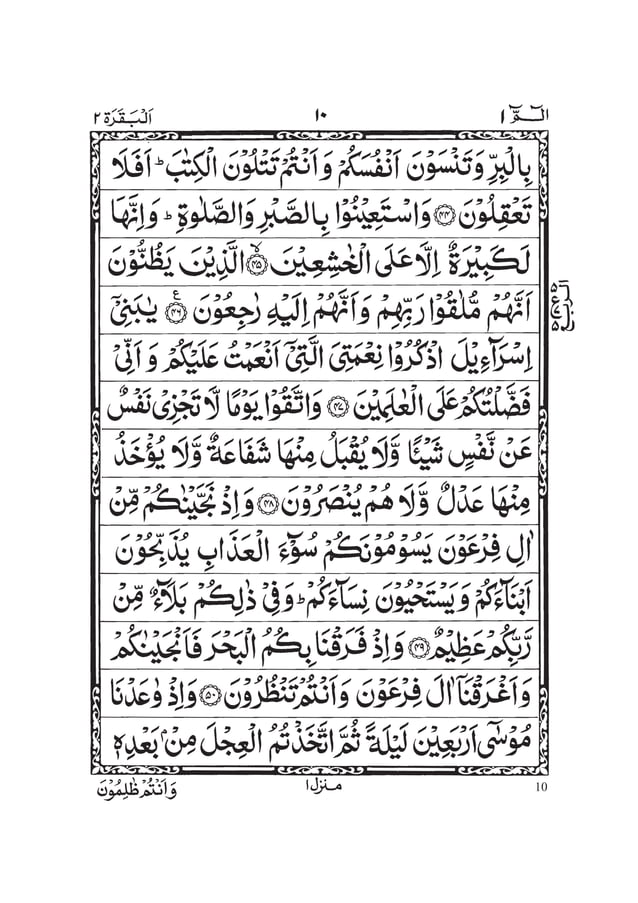 الٓمّٓ ١
١٠
اَلْبَقَرَة ٢
بِالْبِرِّ وَتَنْسَوْنَ اَنْفُسَكُمْ وَاَنْتُمْ تَتْلُوْنَ الْكِتٰبَ ؕ اَفَلَا
تَعْقِلُوْنَ ﴿۴۴﴾ وَاسْتَعِيْنُوْا بِالصَّبْرِ وَالصَّلٰوةِ ؕ وَاِنَّهَا
لَكَبِيْرَةٌ اِلَّا عَلَى الْخٰشِعِيْنَ ﴿۴۵﴾ۙ الَّذِيْنَ يَظُنُّوْنَ
اَنَّهُمْ مُّلٰقُوْا رَبِّهِمْ وَاَنَّهُمْ اِلَيْهِ رٰجِعُوْنَ ﴿۴۶﴾ۧ يٰبَنِيْٓ
اِسْرَآءِيْلَ اذْكُرُوْا نِعْمَتِيَ الَّتِيْٓ اَنْعَمْتُ عَلَيْكُمْ وَاَنِّيْ
فَضَّلْتُكُمْ عَلَى الْعٰلَمِيْنَ ﴿۴۷﴾ وَاتَّقُوْا يَوْمًا لَّا تَجْزِيْ نَفْسٌ
عَنْ نَّفْسٍ شَيْـًٔا وَّلَا يُقْبَلُ مِنْهَا شَفَاعَةٌ وَّلَا يُؤْخَذُ
مِنْهَا عَدْلٌ وَّلَا هُمْ يُنْصَرُوْنَ ﴿۴۸﴾ وَاِذْ نَجَّيْنٰكُمْ مِّنْ
اٰلِ فِرْعَوْنَ يَسُوْمُوْنَكُمْ سُوْٓءَ الْعَذَابِ يُذَبِّحُوْنَ
اَبْنَآءَكُمْ وَيَسْتَحْيُوْنَ نِسَآءَكُمْ ؕ وَفِيْ ذٰلِكُمْ بَلَآءٌ مِّنْ
رَّبِّكُمْ عَظِيْمٌ ﴿۴۹﴾ وَاِذْ فَرَقْنَا بِكُمُ الْبَحْرَ فَاَنْجَيْنٰكُمْ
وَاَغْرَقْنَآ اٰلَ فِرْعَوْنَ وَاَنْتُمْ تَنْظُرُوْنَ ﴿۵۰﴾ وَاِذْ وٰعَدْنَا
مُوْسٰٓى اَرْبَعِيْنَ لَيْلَةً ثُمَّ اتَّخَذْتُمُ الْعِجْلَ مِنْۢ بَعْدِهٖ
10
منزل ١
وَاَنْتُمْ ظٰلِمُوْنَ